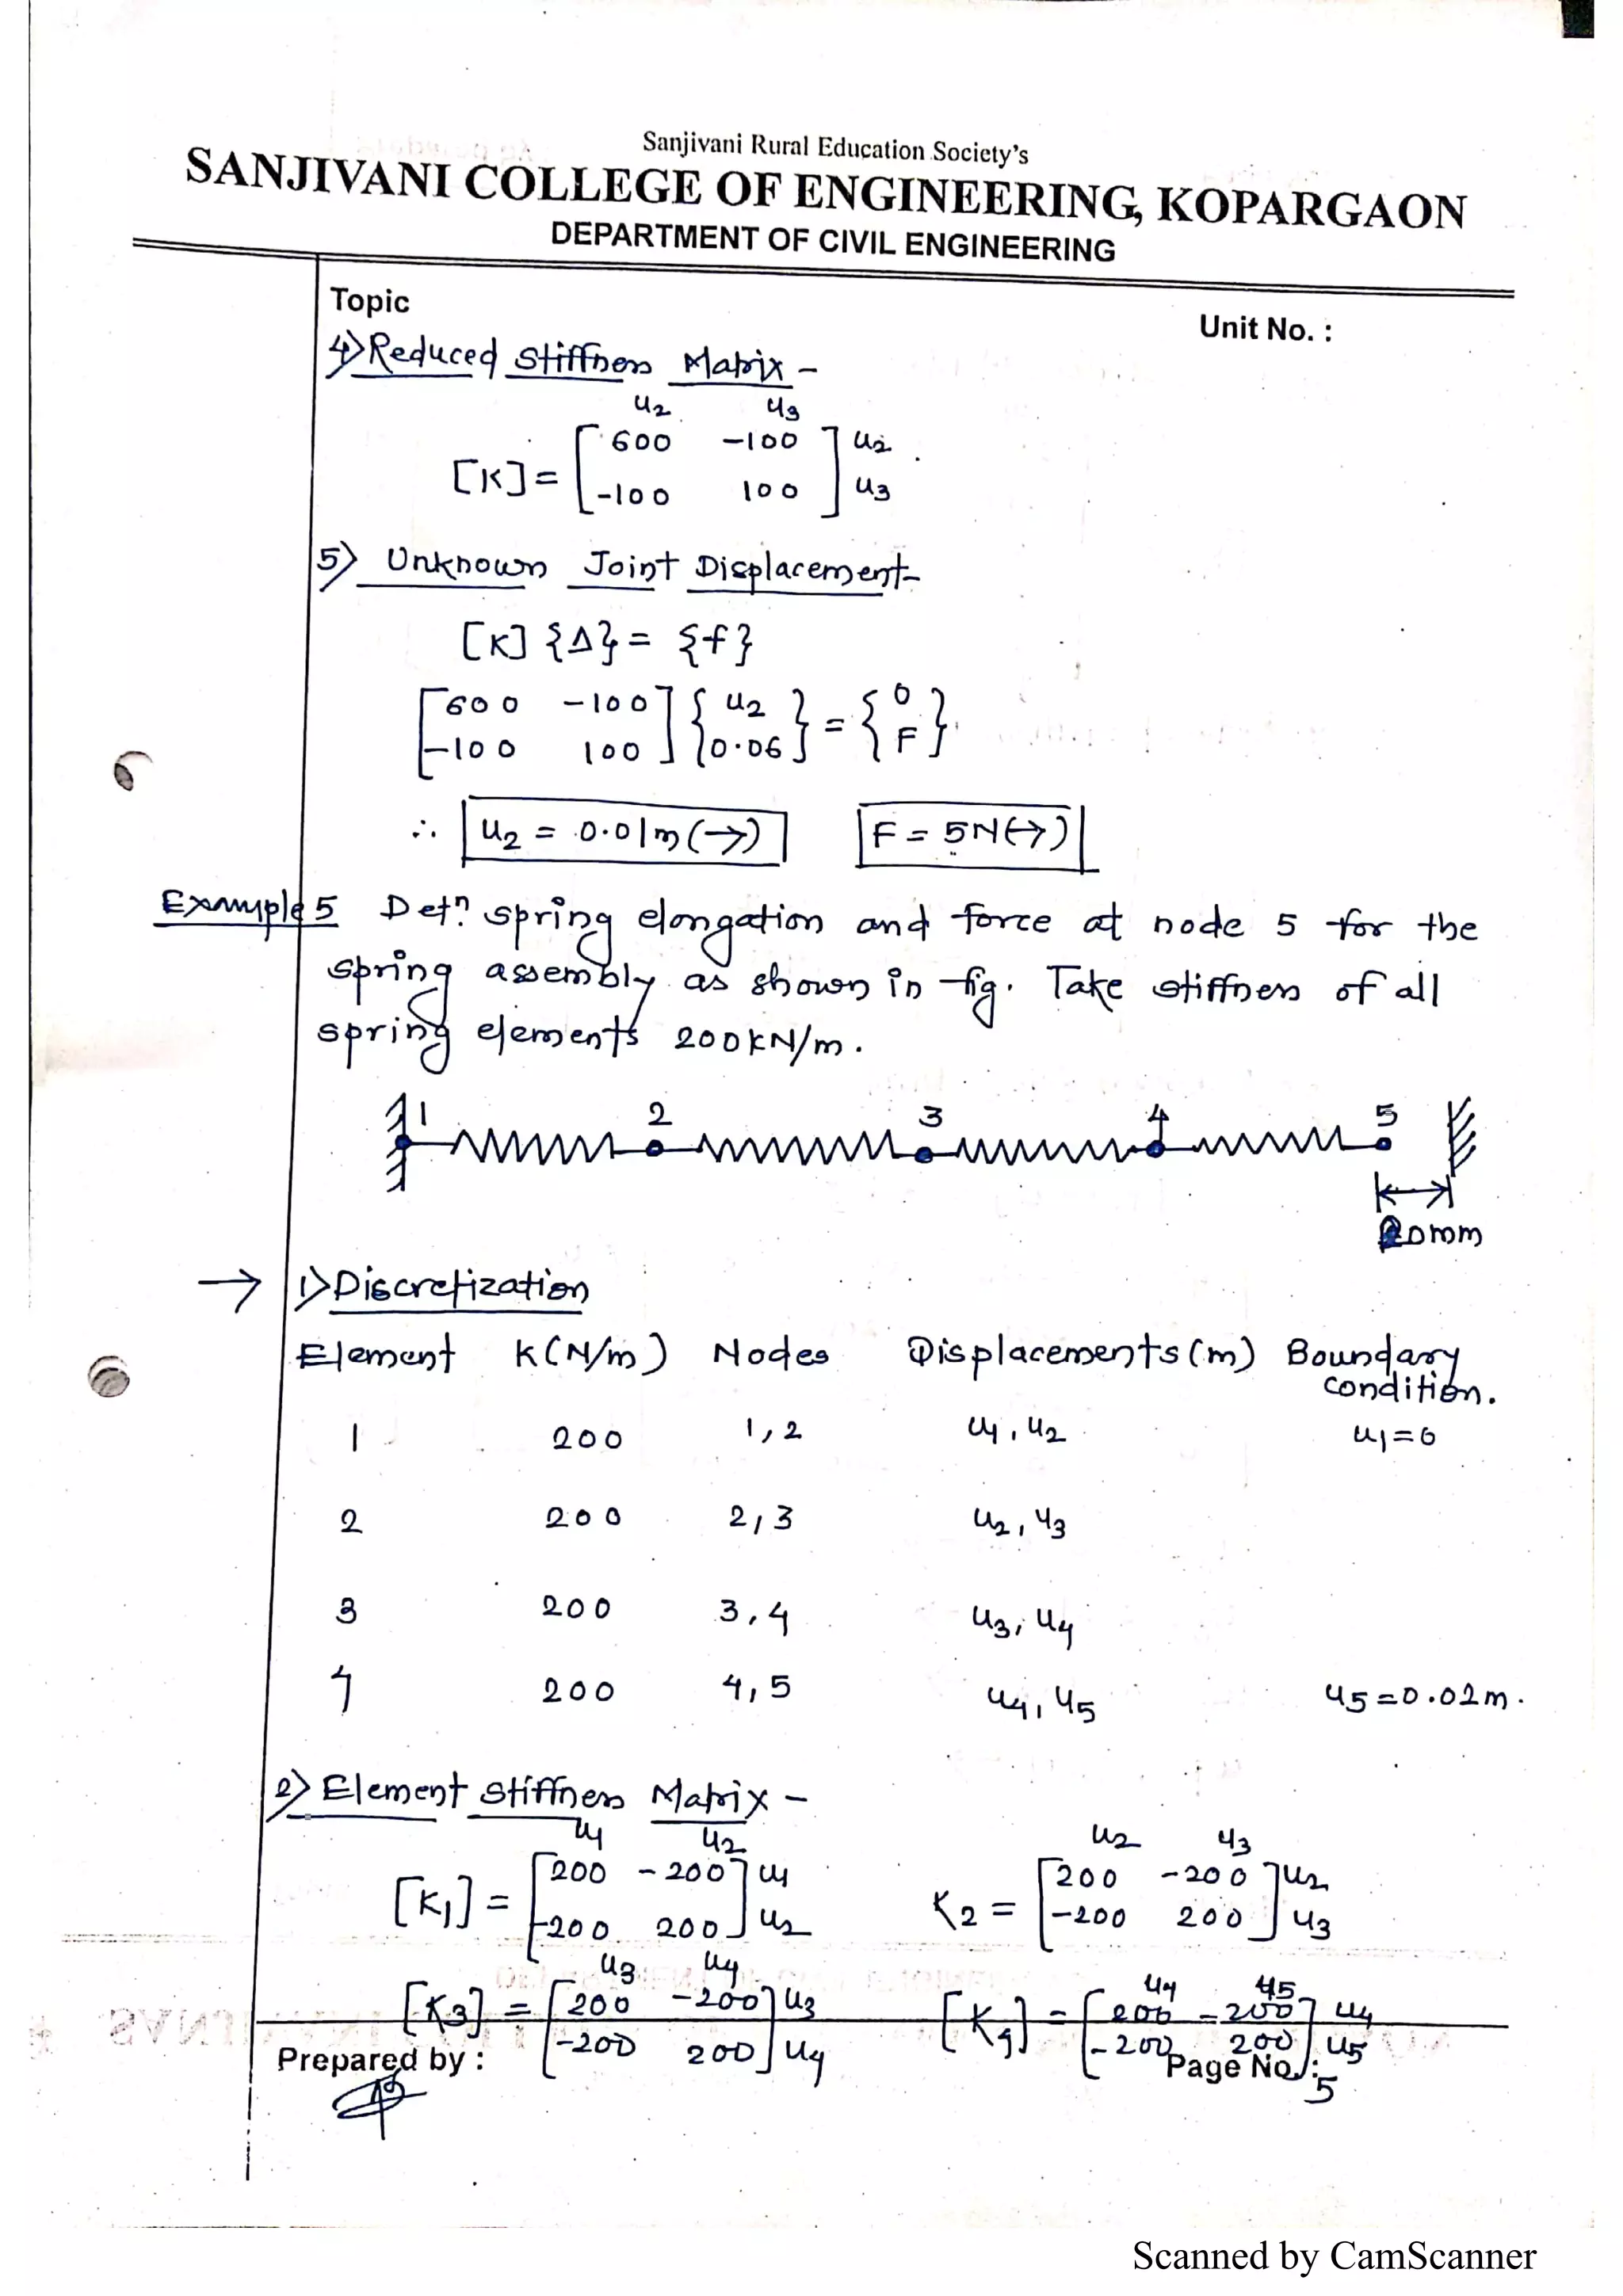 Sanjivani Rural Education Society's
SANJIVANI COLLEGE OF ENGINEERING, KOPARGAON
DEPARTMENT OF CIVIL ENGINEERING
Topic
Unit No. :
4) Reduced Stiffness Matrix -
u2 u3
[K] = [ 600 -100 ] u2
[ -100 100 ] u3
5) Unknown Joint Displacement-
[K] {Δ} = {f}
[ 600 -100 ] { u2 } = { 0 }
[ -100 100 ] { 0.06 } { F }
∴ u2 = 0.01m (→) F = 5N (→)
Example 5 Detn spring elongation and force at node 5 for the
spring assembly as shown in fig. Take stiffness of all
spring elements 200kN/m.
1 2 3 4 5
20mm
→ 1) Discretization
Element K (N/m) Nodes Displacements (m) Boundary
condition.
1 200 1, 2 u1, u2 u1=0
2 200 2, 3 u2, u3
3 200 3, 4 u3, u4
4 200 4, 5 u4, u5 u5=0.02m.
2) Element stiffness Matrix -
u1 u2 u2 u3
[K1] = [ 200 -200 ] u1 K2 = [ 200 -200 ] u2
[ -200 200 ] u2 [ -200 200 ] u3
u3 u4 u4 u5
[K3] = [ 200 -200 ] u3 [K4] = [ 200 -200 ] u4
[ -200 200 ] u4 [ -200 200 ] u5
Prepared by :
Page No.: 5
Scanned by CamScanner